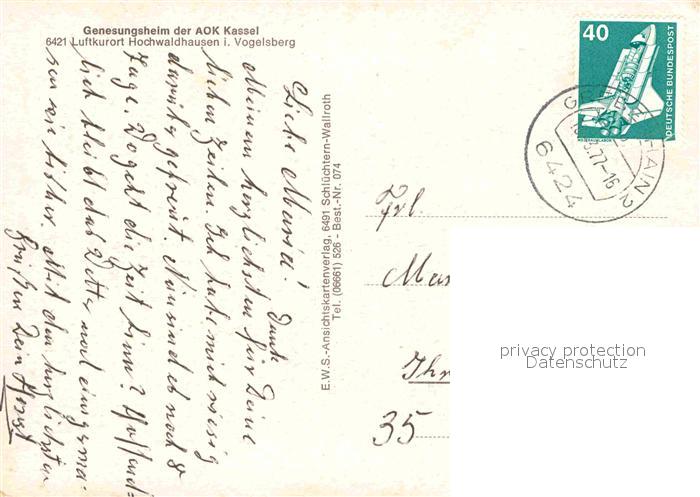 Genesungsheim der AOK Kassel
6421 Luftkurort Hochwaldhausen i. Vogelsberg
Liebe Maria! Dank
Meinem herzlichsten für Deine
lieben Zeilen. Ich habe mich riesig
darüber gefreut. Nun sind es noch 8
Tage. Wo geht die Zeit hinn? Hoffent-
lich bleibt das Wetter noch einigerma-
sen wie bisher. Mit den herzlichsten
Grüßen Dein Horst
E.W.S.-Ansichtskartenverlag, 6491 Schlüchtern-Wallroth
Tel. (06661) 526 - Best.-Nr. 074
40
DEUTSCHE BUNDESPOST
.77-16
6424
2
Frl.
35
privacy protection
Datenschutz